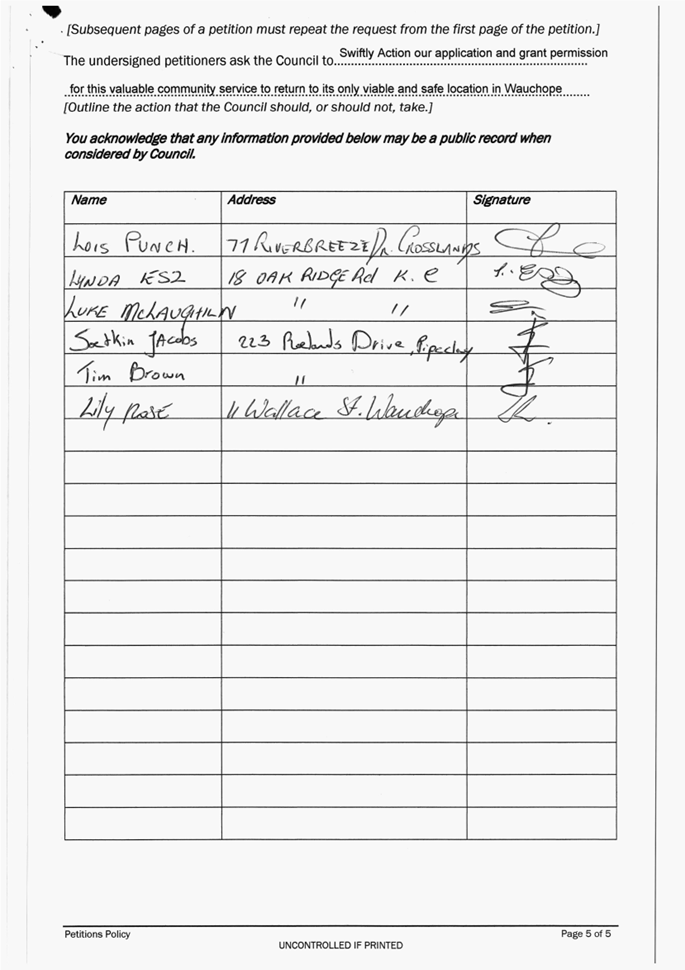 [Subsequent pages of a petition must repeat the request from the first page of the petition.]
The undersigned petitioners ask the Council to Swiftly Action our application and grant permission
for this valuable community service to return to its only viable and safe location in Wauchope
[Outline the action that the Council should, or should not, take.]
You acknowledge that any information provided below may be a public record when
considered by Council.
Name Address Signature
Lois PUNCH. 77 RIVERBREEZE Dr. CROSSLANDS
LYNDA 18 OAK RIDGE Rd K. C
LUKE McLAUGHLIN " "
Jacobs 223 Drive, Pipeclay
Tim Brown "
Lily Rose 11 Wallace St. Wauchope
Petitions Policy Page 5 of 5
UNCONTROLLED IF PRINTED